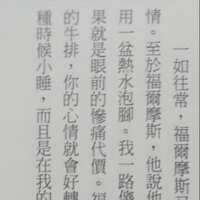 一如往常，福爾摩斯
情。至於福爾摩斯，他說他
用一盆熱水泡腳。我一路
果就是眼前的慘痛代價。
的牛排，你的心情就會好轉
種時候小睡，而且是在我的